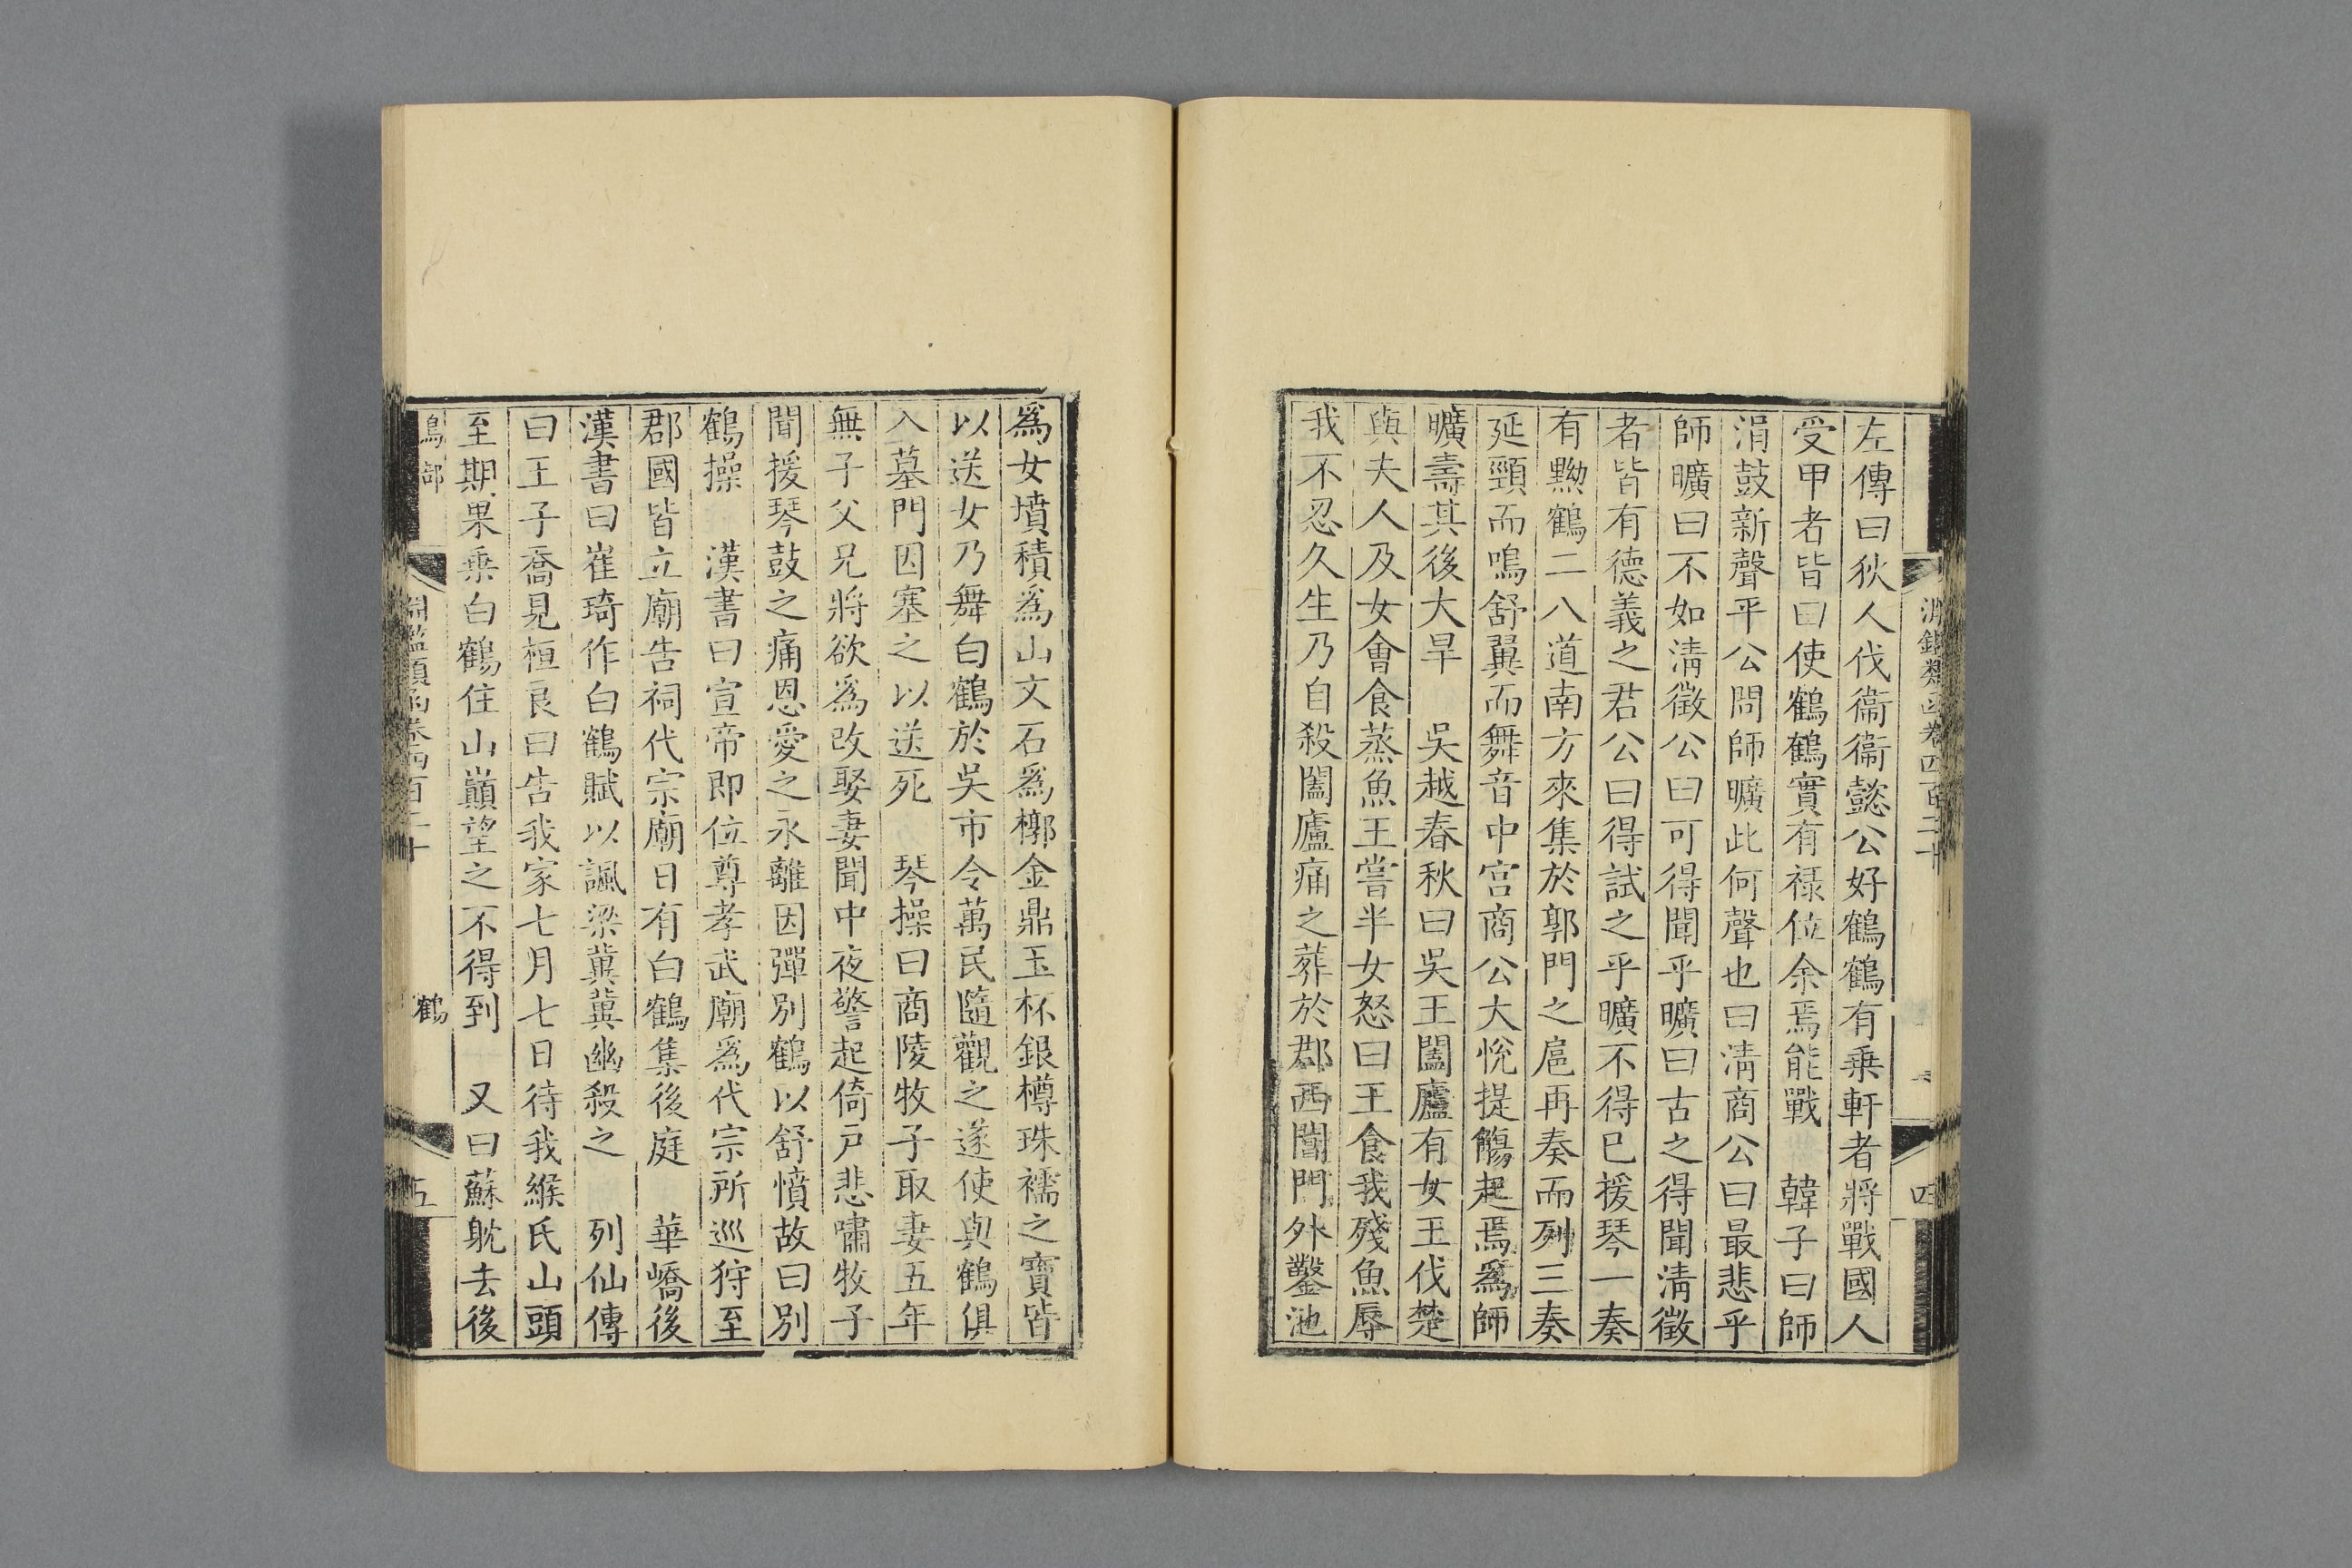 左傳曰狄人伐衞衞懿公好鶴鶴有乗軒者將戰國人
受甲者皆曰使鶴鶴實有祿位余焉能戰　韓子曰師
涓鼓新聲平公問師曠此何聲也曰淸商公曰最悲乎
師曠曰不如淸徵公曰可得聞乎曠曰古之得聞淸徵
者皆有德義之君公曰得試之乎曠不得已援琴一奏
有黝鶴二八道南方來集於郭門之扈再奏而列三奏
延頸而鳴舒翼而舞音中宫商公大悅提觴起焉爲師
曠壽其後大旱　吳越春秋曰吳王闔廬有女王伐楚
與夫人及女會食蒸魚王嘗半女怒曰王食我殘魚辱
我不忍久生乃自殺闔廬痛之葬於郡西閶門外鑿池
爲女墳積爲山文石爲槨金鼎玉杯銀樽珠襦之寶皆
以送女乃舞白鶴於吳市令萬民隨觀之遂使與鶴俱
入墓門因塞之以送死　琴操曰商陵牧子取妻五年
無子父兄將欲爲改娶妻聞中夜警起倚戸悲嘯牧子
聞援琴鼓之痛恩愛之永離因彈別鶴以舒憤故曰別
鶴操　漢書曰宣帝即位尊孝武廟爲代宗所巡狩至
郡國皆立廟告祠代宗廟日有白鶴集後庭　華嶠後
漢書曰崔琦作白鶴賦以諷梁冀冀幽殺之　列仙傳
曰王子喬見桓良曰告我家七月七日待我緱氏山頭
至期果乗白鶴住山巔望之不得到　又曰蘇躭去後
鳥部
淵鑑類函卷四百二十
鶴
五
淵鑑類函卷四百二十
四